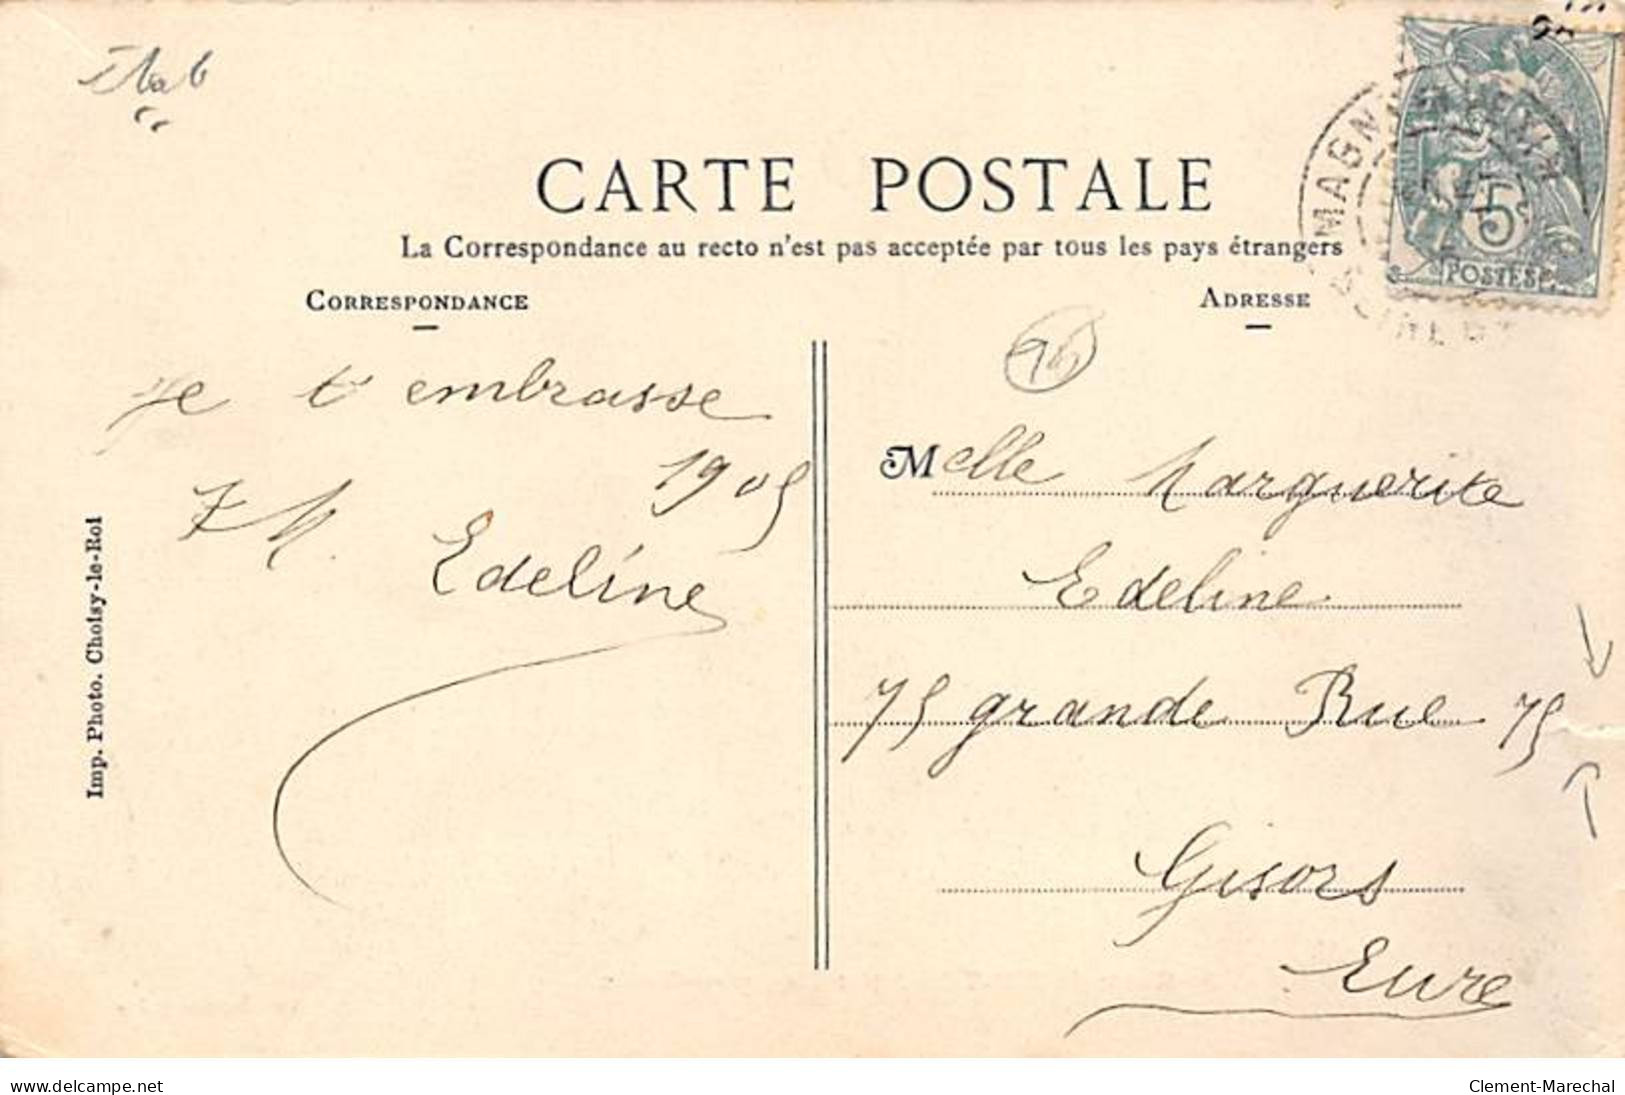 CARTE POSTALE
La Correspondance au recto n'est pas acceptée par tous les pays étrangers
CORRESPONDANCE
ADRESSE
Je t'embrasse
1905
Edeline
Imp. Photo. Choisy-le-Roi
95
Melle Marguerite
Edeline
75 grande Rue 75
Gisors
Eure
MAGNY
5c
POSTES
www.delcampe.net
Clement-Marechal